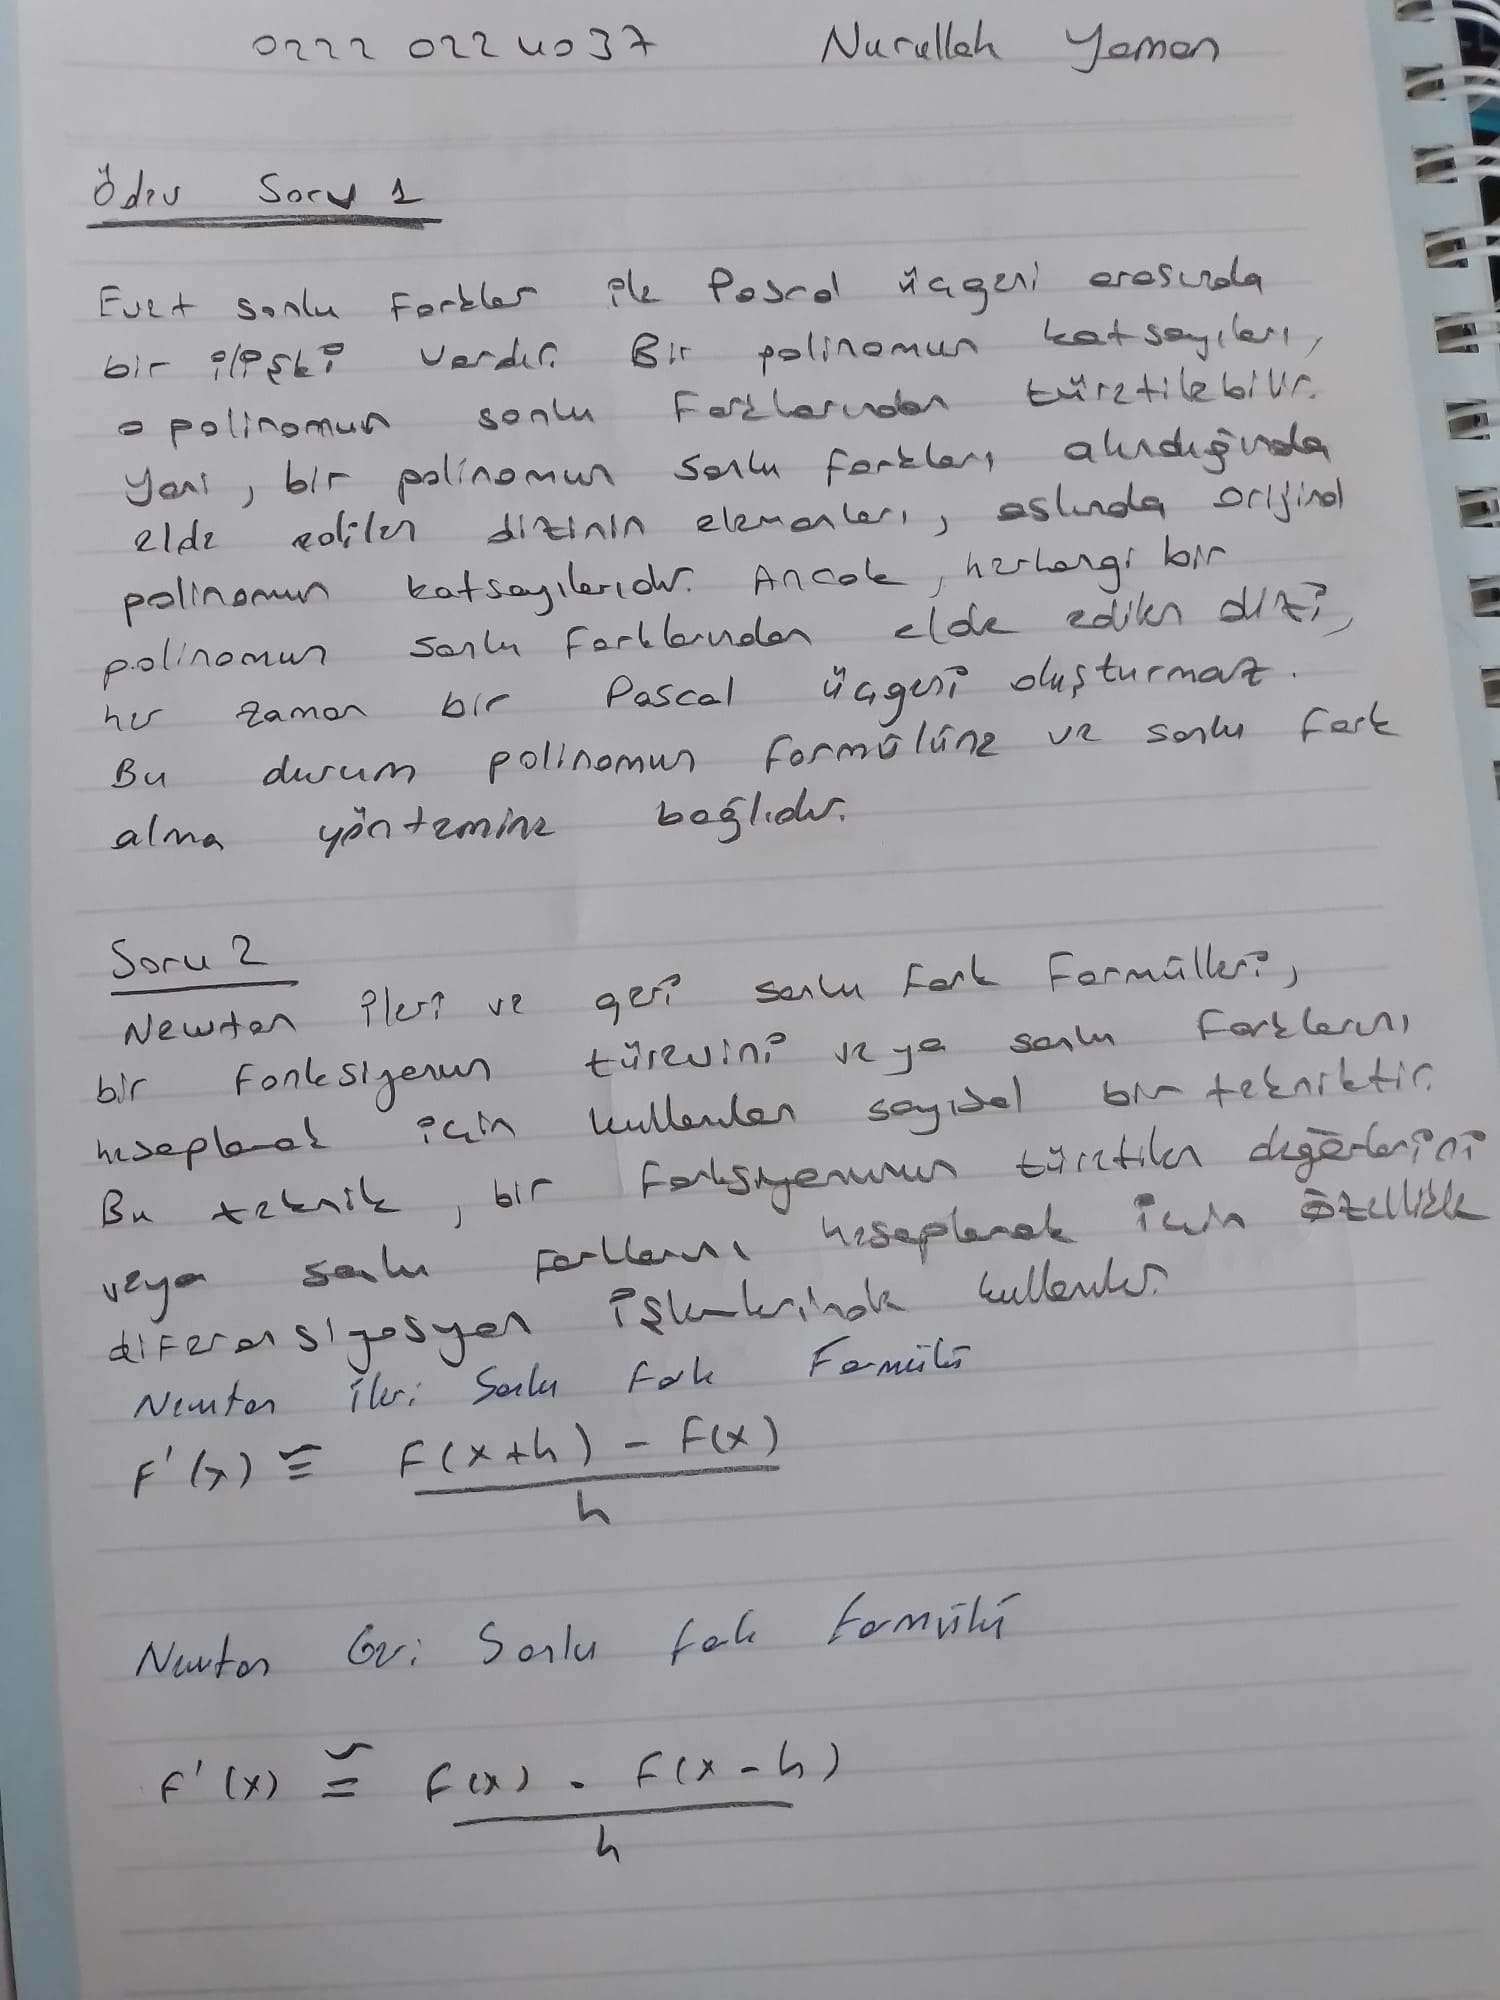 0222 022 4037 Nurullah Yaman
Ödev Soru 1
Evet sonlu farklar ile Pascal üçgeni arasında
bir ilişki vardır. Bir polinomun katsayıları,
o polinomun sonlu farklarından türetilebilir.
Yani, bir polinomun sonlu farkları alındığında
elde edilen dizinin elemanları, aslında orijinal
polinomun katsayılarıdır. Ancak, herhangi bir
polinomun sonlu farklarından elde edilen dizi,
her zaman bir Pascal üçgeni oluşturmaz.
Bu durum polinomun formülüne ve sonlu fark
alma yöntemine bağlıdır.
Soru 2
Newton ileri ve geri sonlu fark formülleri,
bir fonksiyonun türevini veya sonlu farklarını
hesaplamak için kullanılan sayısal bir tekniktir.
Bu teknik, bir fonksiyonunun türetilen değerlerini
veya sonlu farklarını hesaplamak için özellikle
diferansiyasyon işlemlerinde kullanılır.
Newton ileri Sonlu fark Formülü
F'(x) ≅ F(x+h) - F(x)
h
Newton Geri Sonlu fark formülü
F'(x) ≅ F(x) - F(x-h)
h